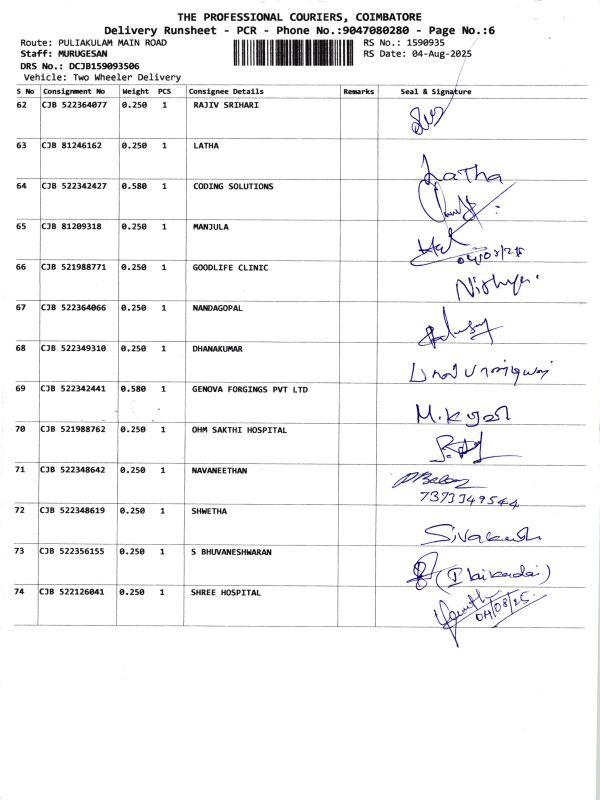 THE PROFESSIONAL COURIERS, COIMBATORE
Delivery Runsheet - PCR - Phone No.:9047080280 - Page No.:6
Route: PULIAKULAM MAIN ROAD RS No.: 1590935
Staff: MURUGESAN RS Date: 04-Aug-2025
DRS No.: DCJB159093506
Vehicle: Two Wheeler Delivery
S No Consignment No Weight PCS Consignee Details Remarks Seal & Signature
62 CJB 522364077 0.250 1 RAJIV SRIHARI
63 CJB 81246162 0.250 1 LATHA Latha
64 CJB 522342427 0.580 1 CODING SOLUTIONS
65 CJB 81209318 0.250 1 MANJULA
04/08/25
66 CJB 521988771 0.250 1 GOODLIFE CLINIC
67 CJB 522364066 0.250 1 NANDAGOPAL
68 CJB 522349310 0.250 1 DHANAKUMAR
69 CJB 522342441 0.580 1 GENOVA FORGINGS PVT LTD
70 CJB 521988762 0.250 1 OHM SAKTHI HOSPITAL
71 CJB 522348642 0.250 1 NAVANEETHAN
7373349544
72 CJB 522348619 0.250 1 SHWETHA
73 CJB 522356155 0.250 1 S BHUVANESHWARAN
74 CJB 522126041 0.250 1 SHREE HOSPITAL
04/08/25